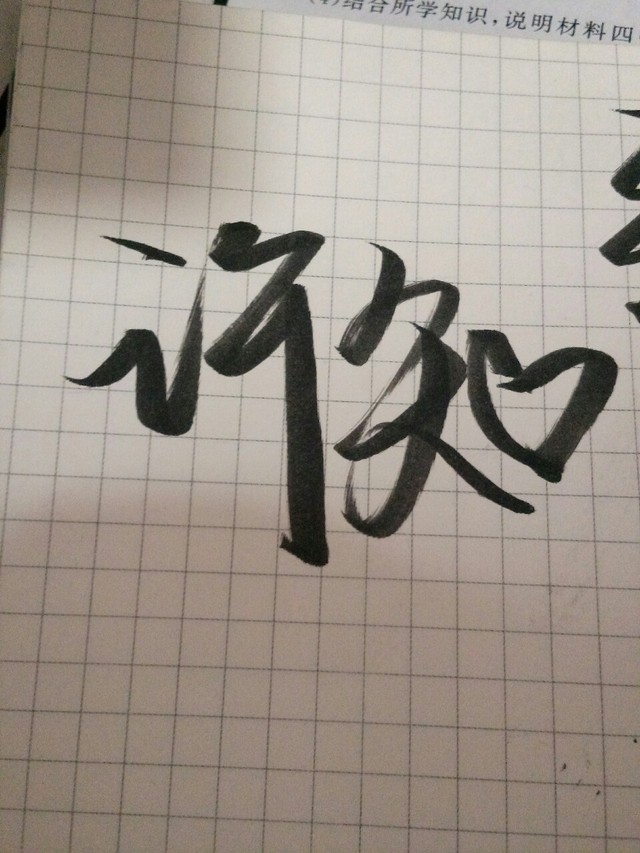 (4)结合所学知识,说明材料四
许知